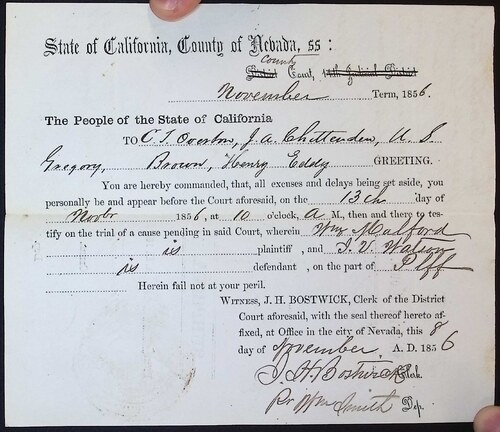 State of California, County of Nevada, ss:
County
District Court, 14th Judicial District
November Term, 1856.
The People of the State of California
TO C T Overton, J. A. Chittenden, U. S
Gregory, Brown, Henry Eddy GREETING.
You are hereby commanded, that, all excuses and delays being set aside, you
personally be and appear before the Court aforesaid, on the 13th day of
Novbr 1856, at 10 o'clock, A M., then and there to tes-
tify on the trial of a cause pending in said Court, wherein Wm Mulford
is plaintiff, and J. V. Watson
is defendant, on the part of Plff
Herein fail not at your peril.
WITNESS, J. H. BOSTWICK, Clerk of the District
Court aforesaid, with the seal thereof hereto af-
fixed, at Office in the city of Nevada, this 8
day of November, A. D. 1856
J. H. Bostwick Clerk.
Pr Wm Smith Dep.